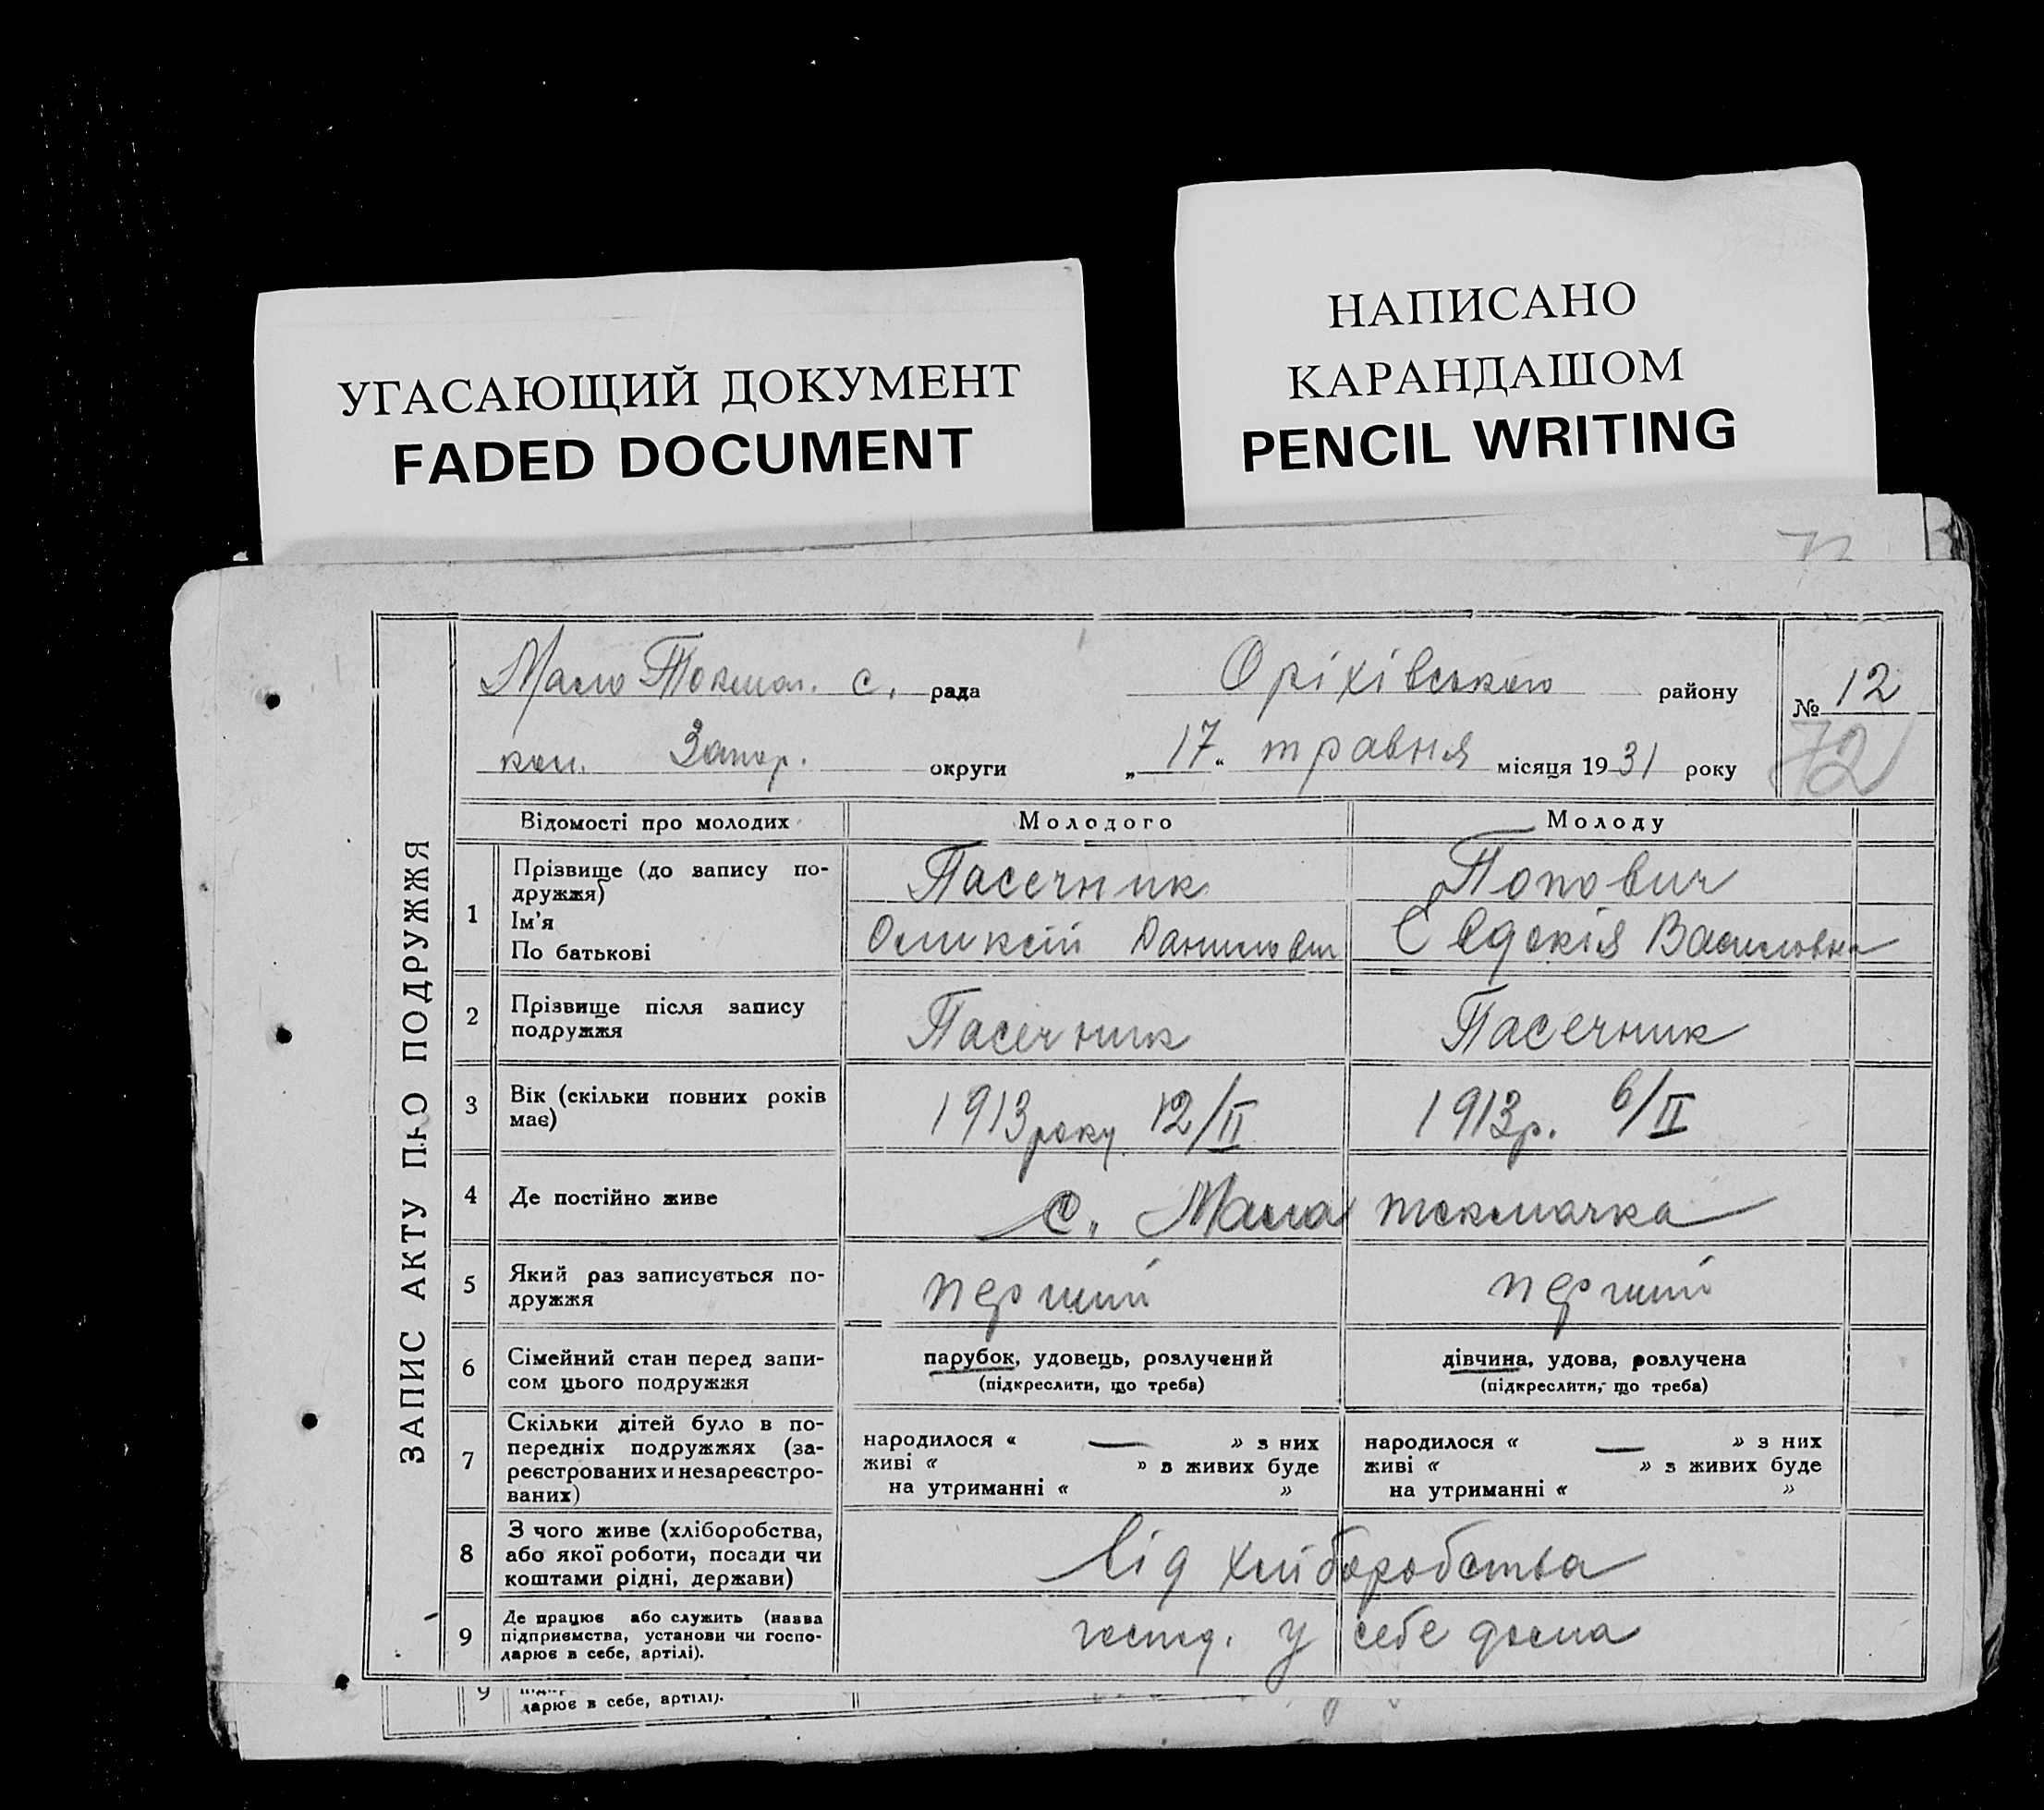 УГАСАЮЩИЙ ДОКУМЕНТ
FADED DOCUMENT
НАПИСАНО
КАРАНДАШОМ
PENCIL WRITING
ЗАПИС АКТУ ПРО ПОДРУЖЖЯ
Мало Токмач. с. рада Оріхівського району № 12
кол. Запор. округи „17“ травня місяця 1931 року 72
Відомості про молодих Молодого Молоду
1 Прізвище (до запису по-
дружжя) Пасечник Попович
Ім'я
По батькові Оликсій Данилович Евдокія Василовна
2 Прізвище після запису
подружжя Пасечник Пасечник
3 Вік (скільки повних років
має) 1913 року 12/II 1913р. 6/II
4 Де постійно живе с. Мала токмачка
5 Який раз записується по-
дружжя перший перший
6 Сімейний стан перед запи-
сом цього подружжя
парубок, удовець, розлучений
(підкреслити, що треба)
дівчина, удова, розлучена
(підкреслити, що треба)
7 Скільки дітей було в по-
передніх подружжях (за-
реєстрованих и незареєстро-
ваних)
народилося « — » з них
живі « » в живих буде
на утриманні « »
народилося « — » з них
живі « » з живих буде
на утриманні « »
8 З чого живе (хліборобства,
або якої роботи, посади чи
коштами рідні, держави)
від хліборобства
9 Де працює або служить (назва
підприємства, установи чи госпо-
дарює в себе, артілі).
господ. у себе дома
9
дарює в себе, артілі).